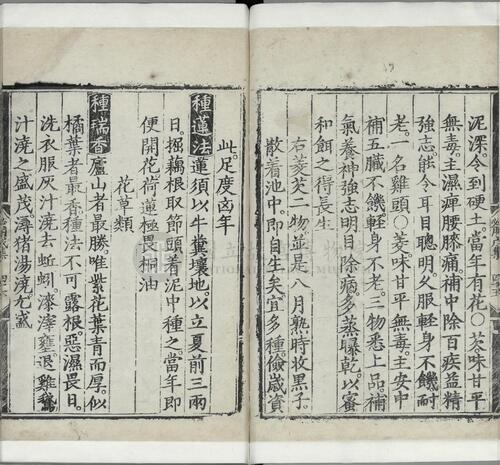 泥深。令到硬土。當年有花○芡味甘平
無毒主濕痺腰膝痛。補中除百疾益精
強志。能令耳目聰明久服輕身不饑耐
老。一名雞頭○菱。味甘平無毒。主安中
補五臟不饑輕身不老。三物悉上品補
氣養神強志明目除病多蒸曝乾以蜜
和餌之得長生
右菱芡二物並是八月熟時收黒子。
散着池中。即自生矣宜多種。儉歲資
此。足度凶年
種蓮法蓮須以牛糞壤地以立夏前三兩
日。掘藕根取節頭着泥中種之當年即
便開花荷蓮極畏桐油
花草類
種瑞香廬山者最勝唯紫花葉青而厚。似
橘葉者最香種法不可露根惡濕畏日。
洗衣服灰汁澆去蚯蚓。漆滓壅退雞鵞
汁澆之盛茂。潯猪湯澆尤盛